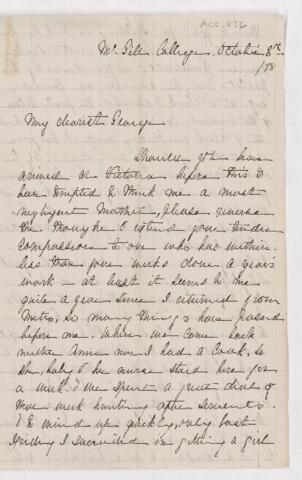 ACC. 876
McGill College October 8th
/78
My dearest George
Should you have
arrived at Victoria before this &
been tempted to think me a most
negligent Mother, please reverse
the thought & extend your tender
compassion to one who has within
less than four weeks done a year's
work - at least it seems to me
quite a year since I returned from
Metis, so many things have passed
before me. When we came back
neither Anna nor I had a Cook, so
she, baby & the nurse staid here for
a week. & we spent a great deal of
that week hunting after servants.
to wind up quickly, only last
Friday I succeeded in getting a girl